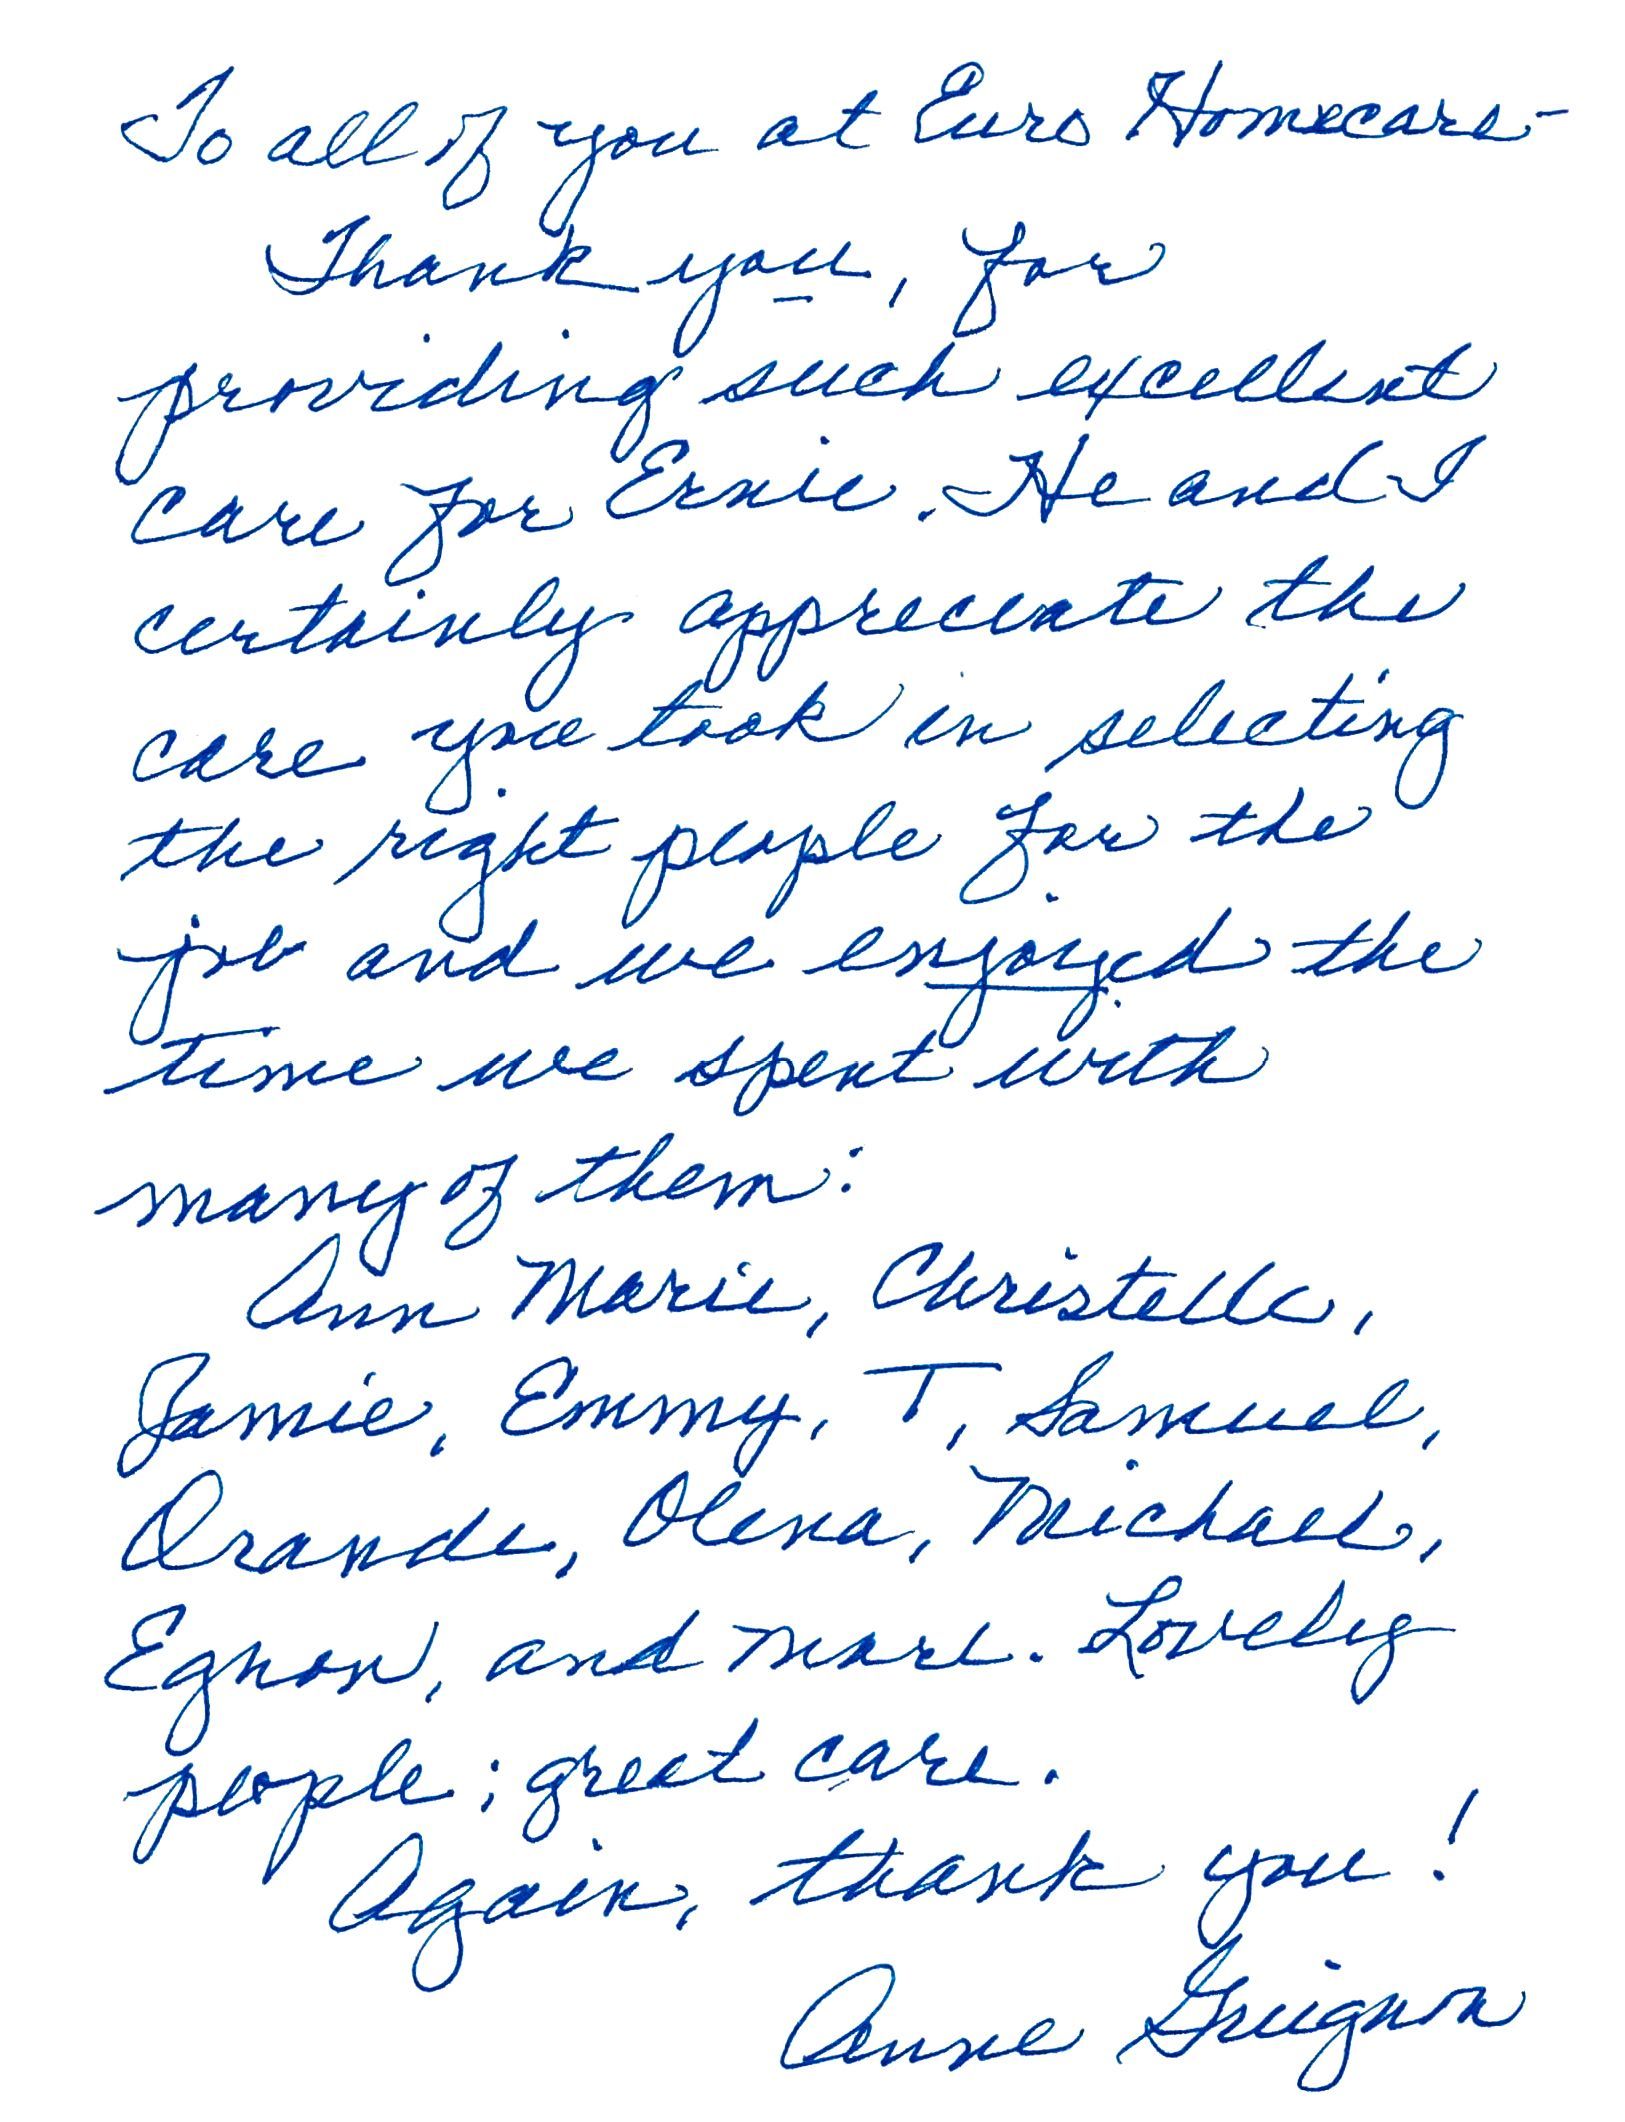 To all of you at Euro Homecare-
Thank you, for
providing such excellent
care for Ernie. He and I
certainly appreciate the
care you took in selecting
the right people for the
job and we enjoyed the
time we spent with
many of them:
Ann Marie, Christelle,
Jamie, Emmy, T, Samuel,
Olena, Michael,
and more. Lovely
people; great care.
Again, thank you!
Anne